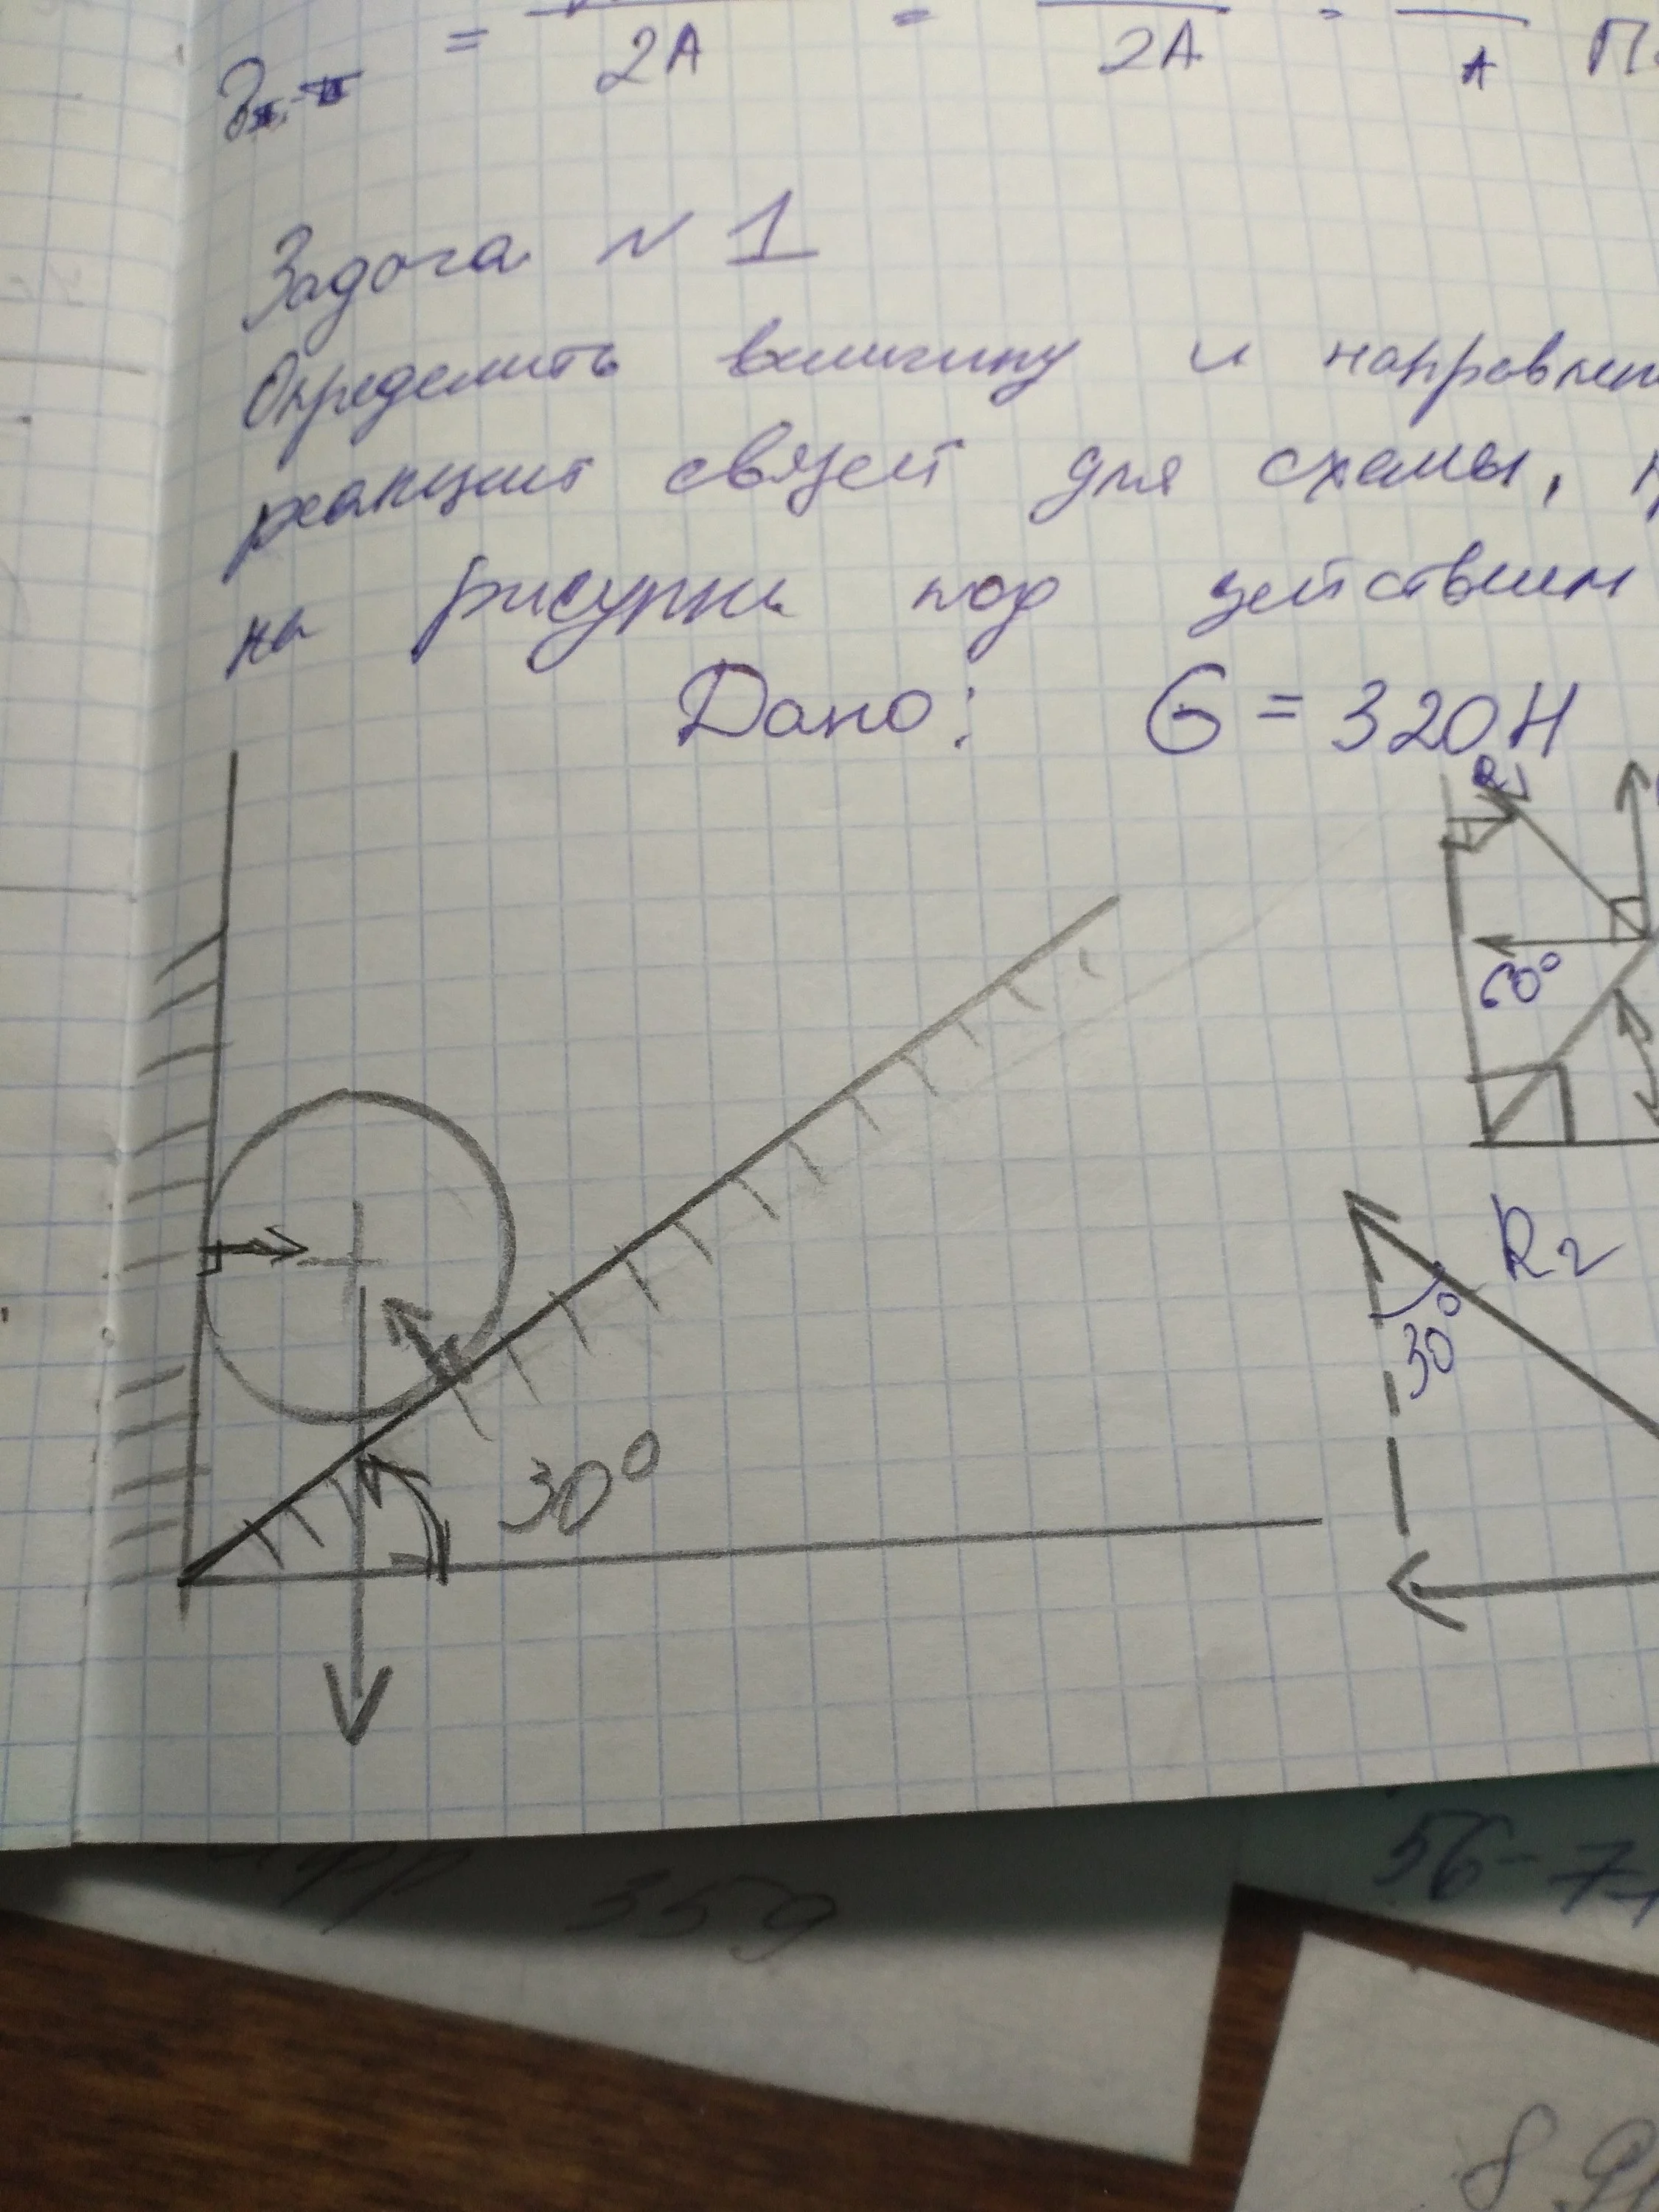 = 2A = 2A = A
Задача № 1
Определить величину и направлен
реакций связей для схемы,
на рисунке под действием
Дано: G = 320 Н
R
60°
R2
30°
30°
359
56-7
8